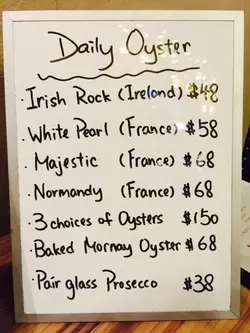 Daily Oyster
· Irish Rock (Ireland) $48
· White Pearl (France) $58
· Majestic (France) $68
· Normandy (France) $68
· 3 choices of Oysters $150
· Baked Mornay Oyster $68
· Pair glass Prosecco $38